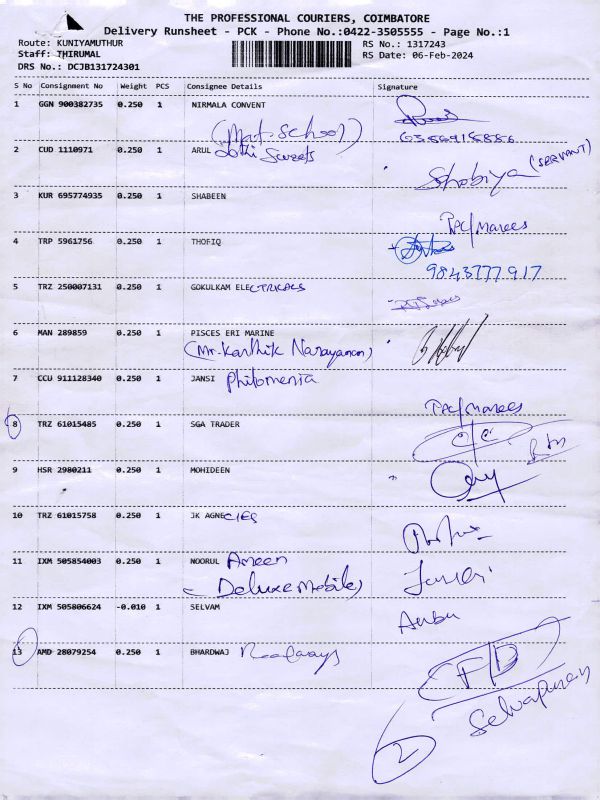 THE PROFESSIONAL COURIERS, COIMBATORE
Delivery Runsheet - PCK - Phone No.:0422-3505555 - Page No.:1
Route: KUNIYAMUTHUR
RS No.: 1317243
Staff: THIRUMAL
RS Date: 06-Feb-2024
DRS No.: DCJB131724301
S No Consignment No Weight PCS Consignee Details Signature
1 GGN 900382735 0.250 1 NIRMALA CONVENT
(Mat. School)
2 CUD 1110971 0.250 1 ARUL Jothi Sweets
Shobiya (SERVANT)
3 KUR 695774935 0.250 1 SHABEEN
TPC/Marees
4 TRP 5961756 0.250 1 THOFIQ
9843777917
5 TRZ 250007131 0.250 1 GOKULKAM ELECTRICALS
6 MAN 289859 0.250 1 PISCES ERI MARINE
(Mr. Karthik Narayanan)
7 CCU 911128340 0.250 1 JANSI Philomenia
TPC/Marees
8 TRZ 61015485 0.250 1 SGA TRADER
C/C
9 HSR 2980211 0.250 1 MOHIDEEN
10 TRZ 61015758 0.250 1 JK AGNECIES
11 IXM 505854003 0.250 1 NOORUL Ameen
(Deluxe Mobile)
12 IXM 505806624 -0.010 1 SELVAM
Anbu
13 AMD 28079254 0.250 1 BHARDWAJ Roadways
F/D
2